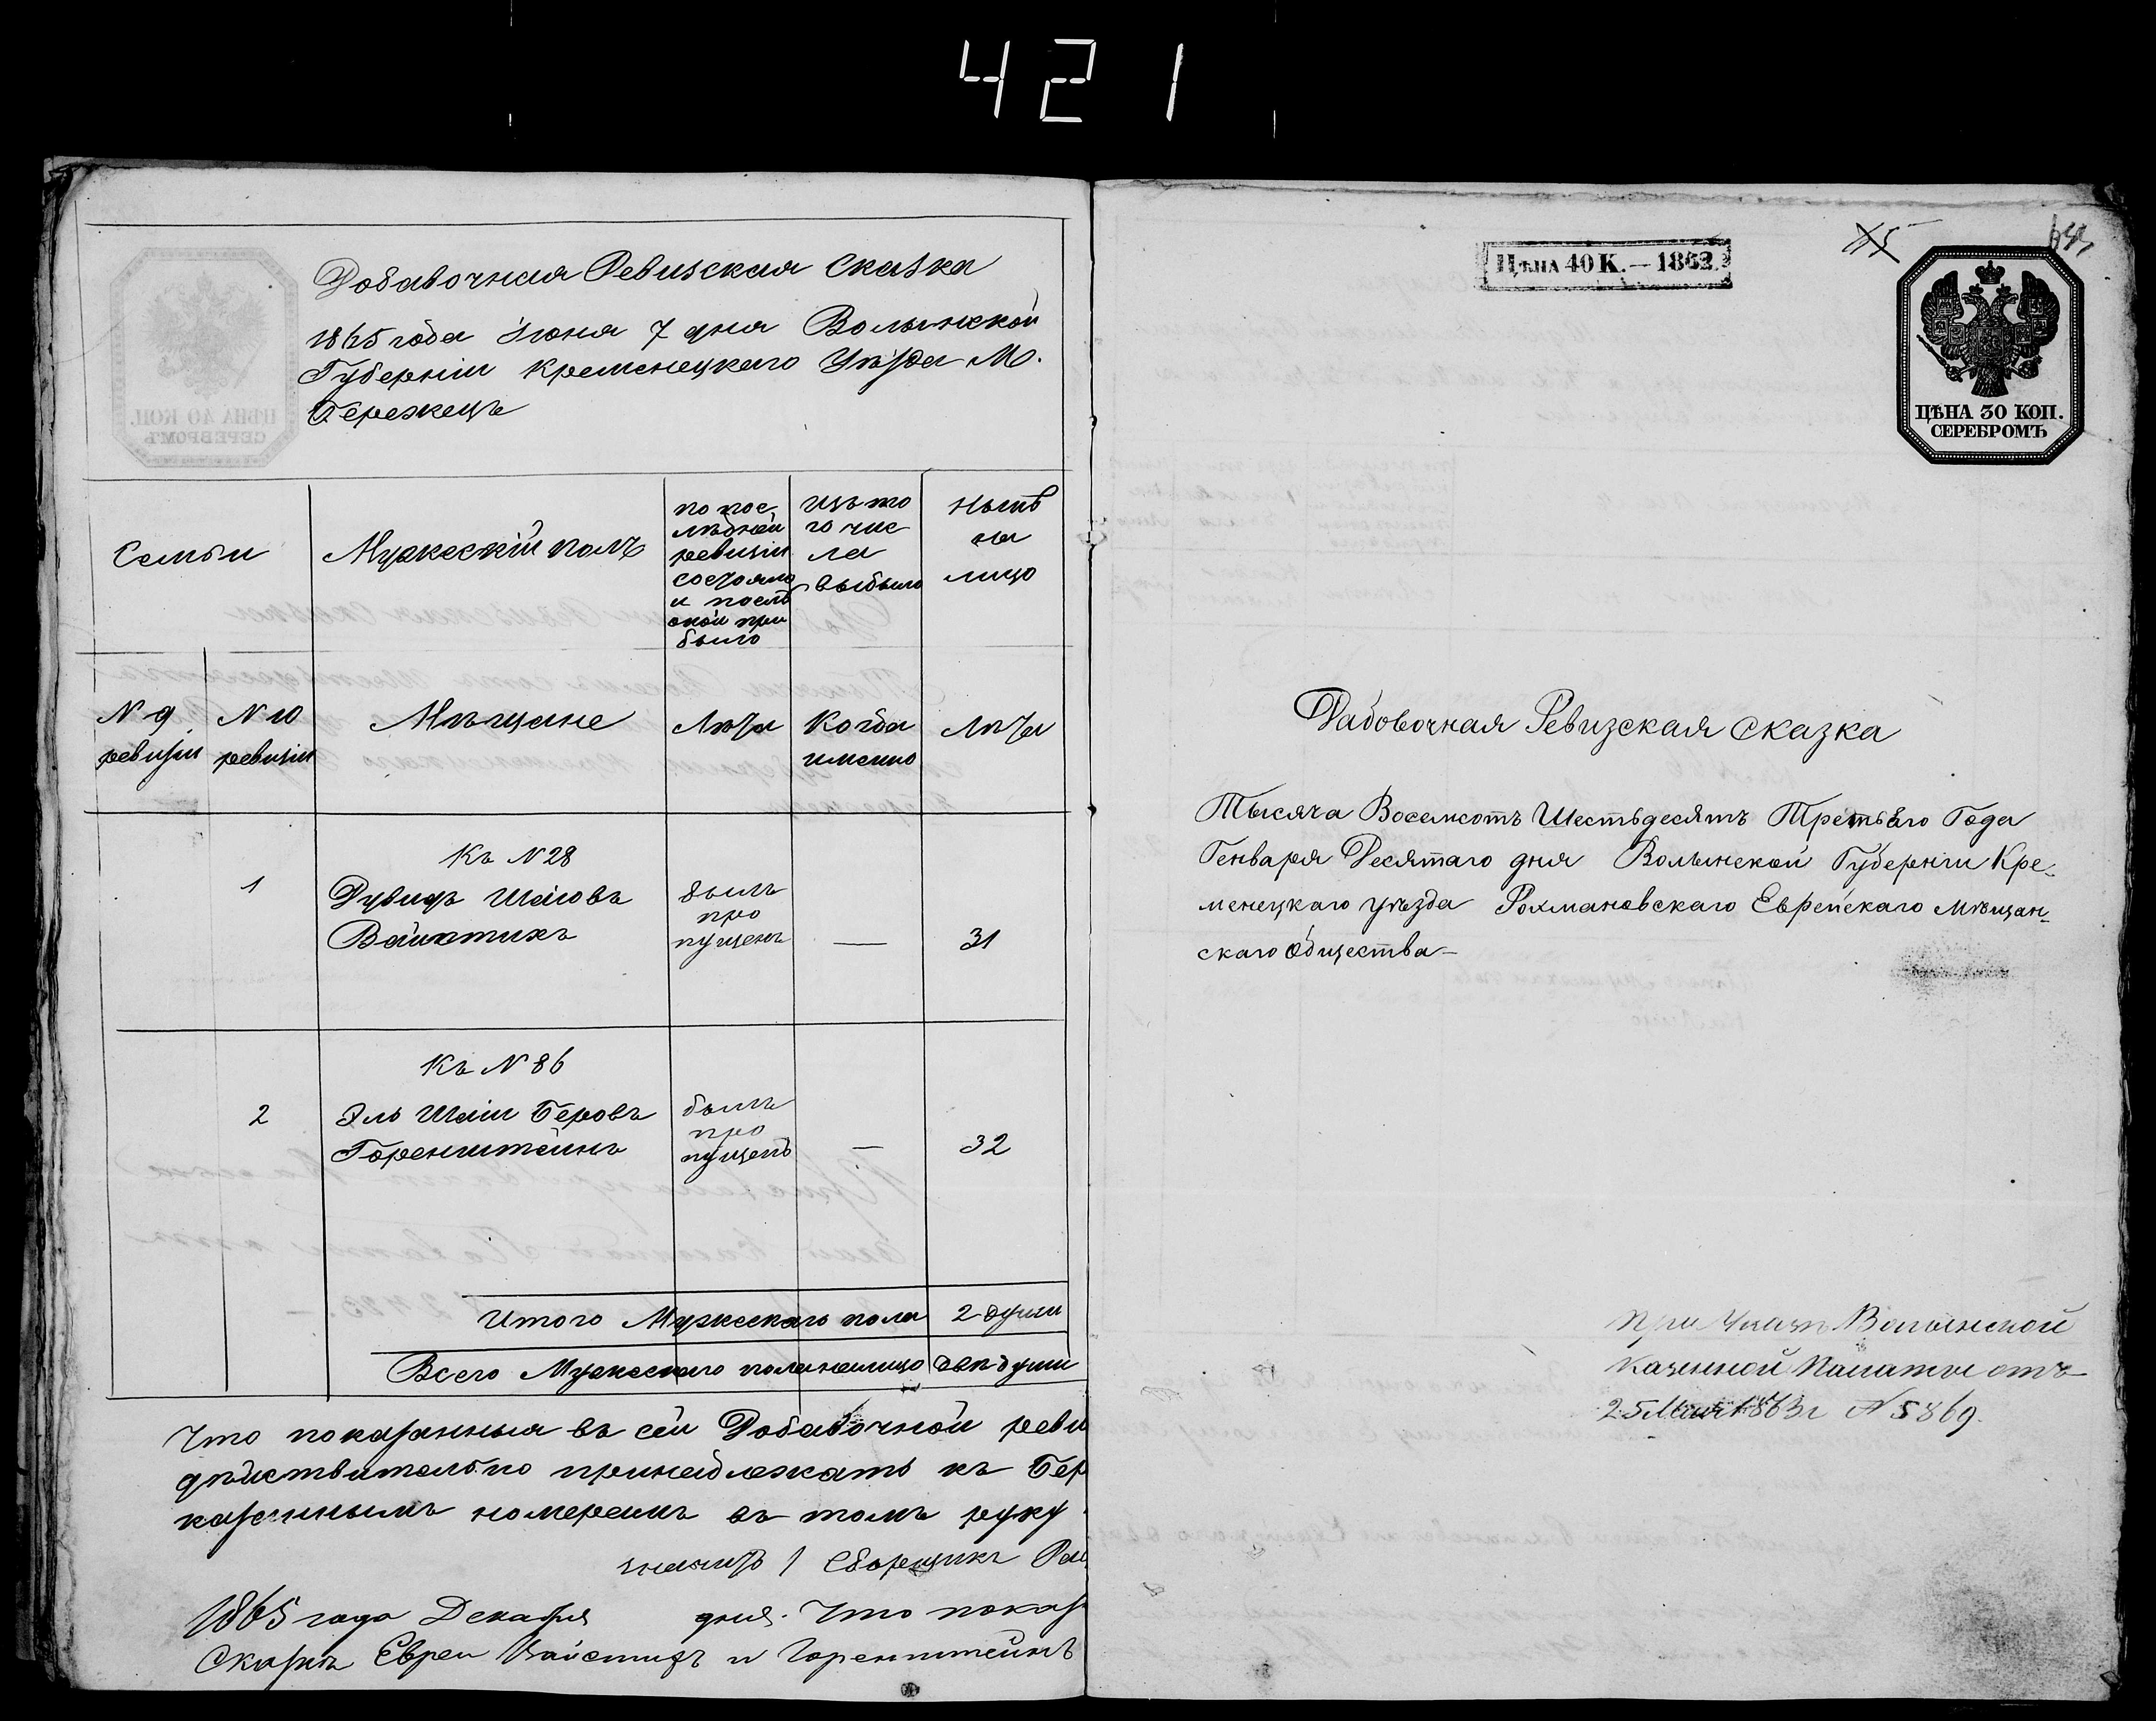 421
Добавочная Ревизская сказка
1865 года Июня 7 дня Волынской
Губернии Кременецкаго Уѣзда М.
Бережецъ
ЦѢНА 40 КОП.
СЕРЕБРОМЪ
Семьи
Мужескій полъ
по пос
лѣдней
ревизіи
состояло
и послѣ
оной при
было
изъ то
го чис
ла
выбыло
Нынѣ
на
лицо
N 9
ревизіи
N 10
ревизіи
Мѣщане
Лѣта
Когда
именно
Лѣта
Къ N 28
1
Дувидъ Шаіовъ
былъ
про
пущенъ
—
31
Къ N 86
2
Эль Шаіи Беровъ
Горенштейнъ
былъ
про
пущенъ
—
32
Итого Мужескаго пола 2 души
Всего Мужескаго пола налицо двѣ души
Что показанныя въ сей Добавочной реви
дѣйствительно принадлежатъ къ Бер
казаннымъ номерамъ въ томъ руку
Сборщикъ
1865 года Декабря дня. Что показ
Сказкѣ Евреи и Горенштейнъ
ЦѢНА 40 К. — 1862.
15
ЦѢНА 30 КОП.
СЕРЕБРОМЪ
Дабовочная Ревизская сказка
Тысяча Восемсотъ Шестьдесятъ Третьяго Года
Генваря Десятаго дня Волынской Губернии Кре-
менецкаго уѣзда Рохмановскаго Еврейскаго Мѣщан-
скаго Общества —
При Указѣ Волынской
Казенной Палаты отъ
25 Мая 1863 г N 5869.